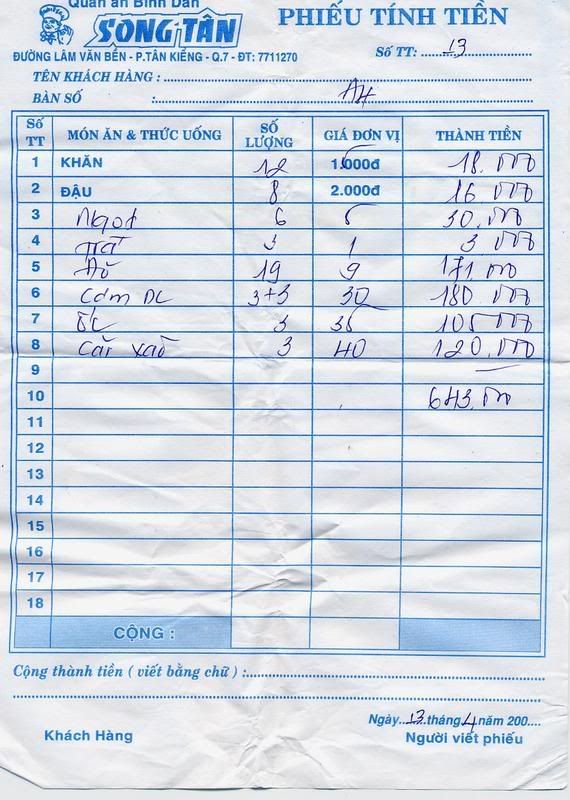 Quán ăn Bình Dân
SONG TÂN
ĐƯỜNG LÂM VĂN BỀN - P.TÂN KIỂNG - Q.7 - ĐT: 7711270
PHIẾU TÍNH TIỀN
Số TT: 13
TÊN KHÁCH HÀNG :
BÀN SỐ : A4
Số TT MÓN ĂN & THỨC UỐNG SỐ LƯỢNG GIÁ ĐƠN VỊ THÀNH TIỀN
1 KHĂN 12 1.000đ 18.000
2 ĐẬU 8 2.000đ 16.000
3 Ngọt 6 5 30.000
4 3 1 3 000
5 19 9 171.000
6 Cơm DC 3+3 30 180.000
7 Ốc 3 35 105 000
8 xào 3 40 120.000
9
10 643.000
11
12
13
14
15
16
17
18
CỘNG :
Cộng thành tiền ( viết bằng chữ ) :
Ngày 13 tháng 4 năm 200
Khách Hàng Người viết phiếu